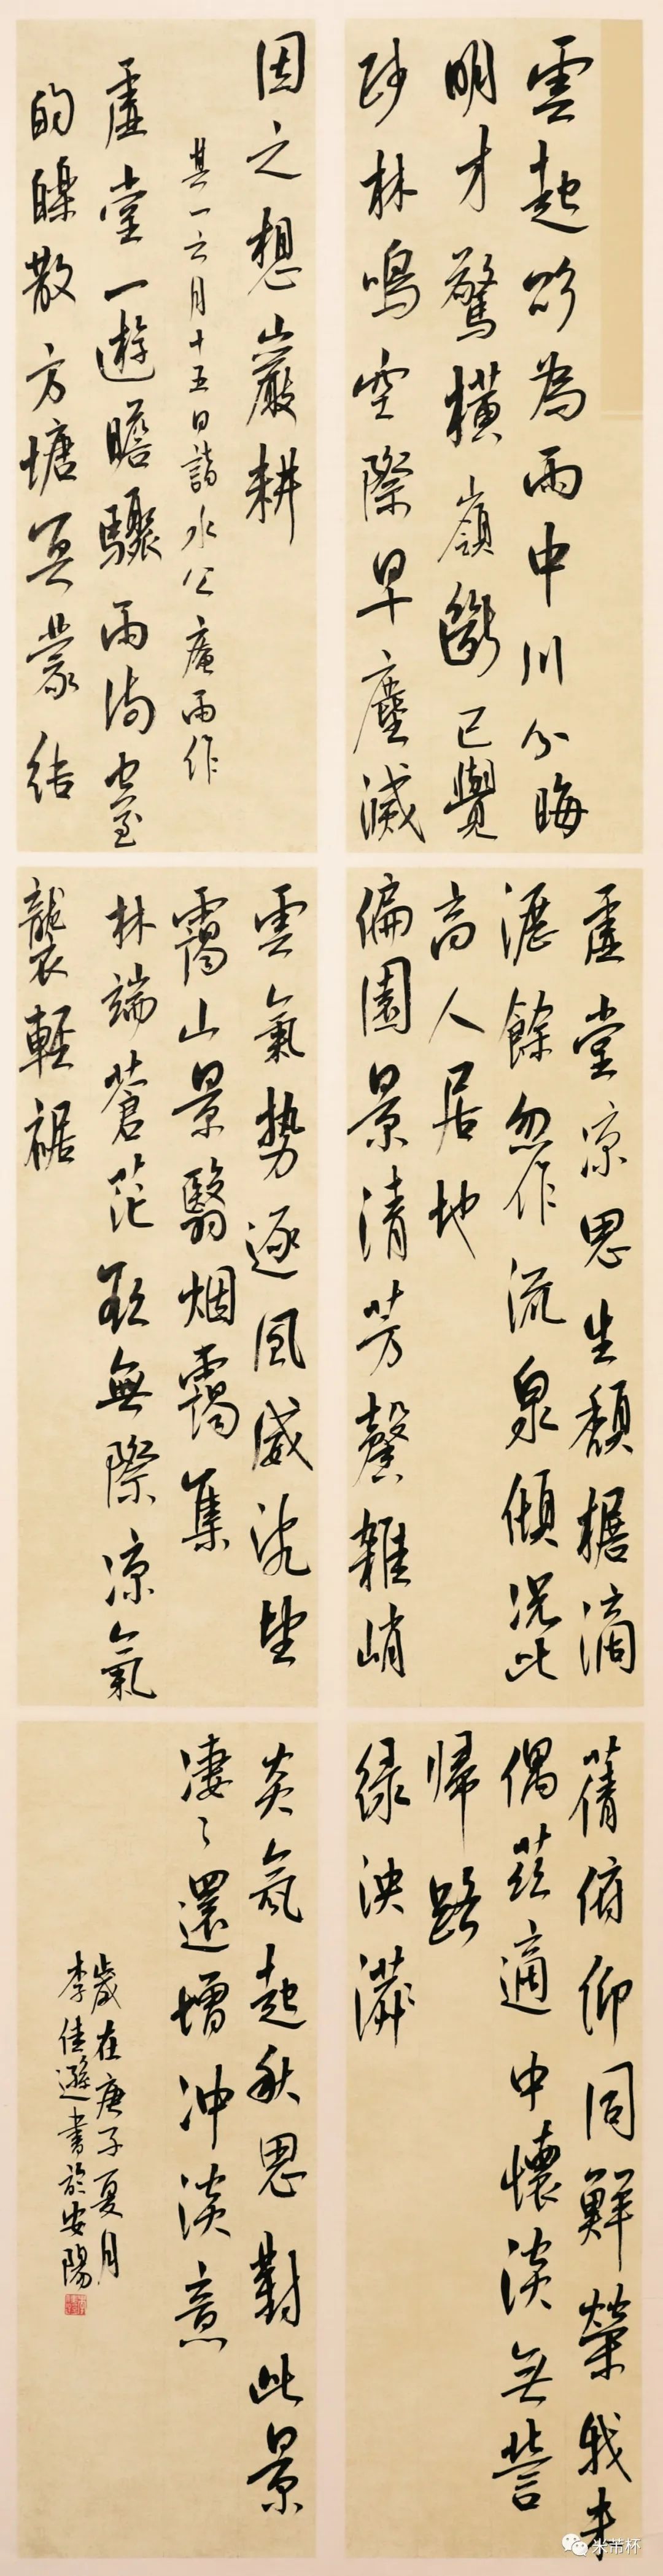 雲起欲為雨中川分晦
明才驚橫嶺斷已覺
疎林鳴空際旱塵滅
虛堂凉思生頹椐滴
瀝餘忽作流泉傾況此
高人居地
偏園景清芳馨雜峭
蒨俯仰同鮮榮我来
偶茲適中懷淡無營
歸路
緑泱漭
因之想巖耕
其一六月十五日詣水公庵雨作
虛堂一遊瞻驟雨滿空至
的皪散方塘冥蒙结
雲氣势逐風威亂望
靄山景翳烟靄集
林端蒼茫欲無際凉氣
襲輕裾
炎氛起秋思對此景
凄〻還增沖淡意
歲在庚子夏月
李佳遜書於安陽
米芾杯